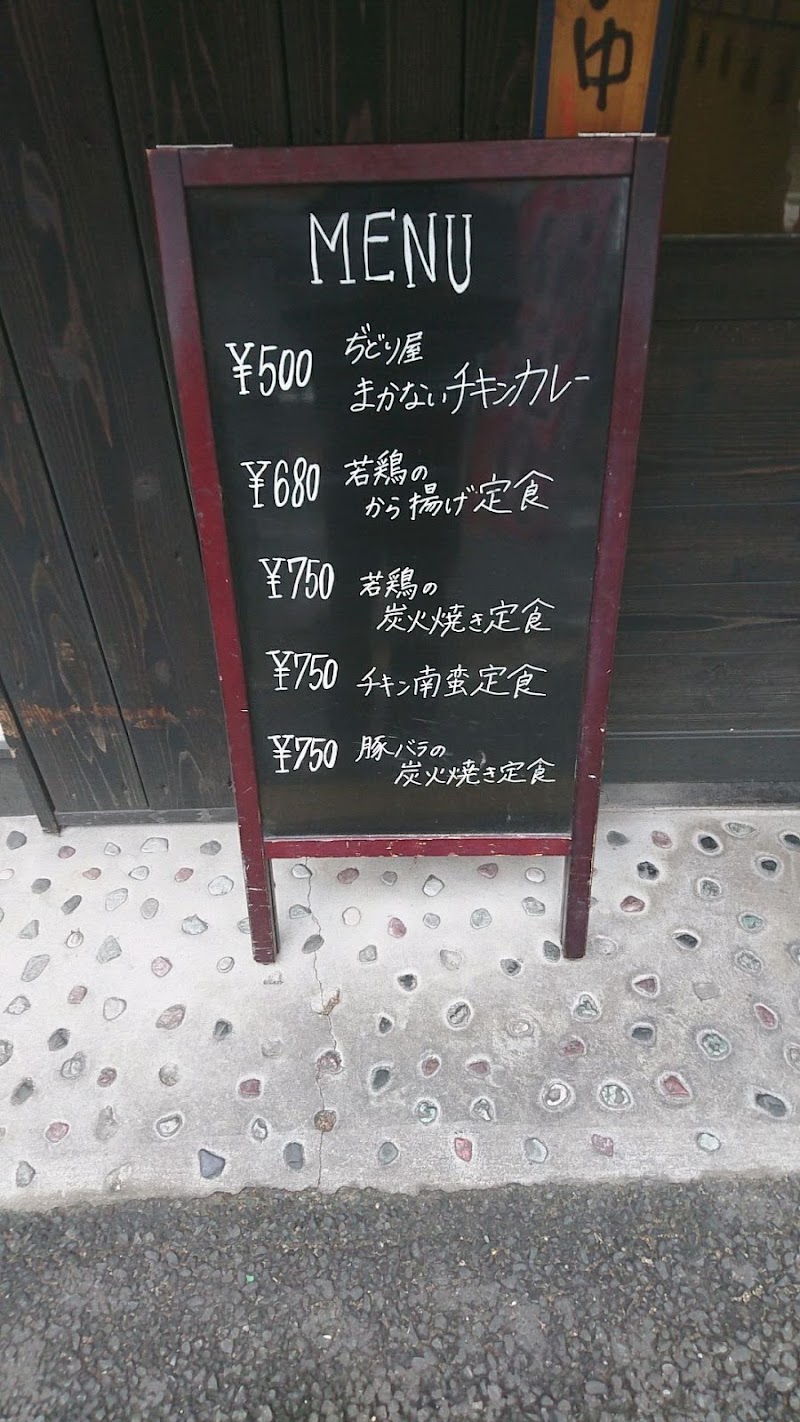 中
MENU
¥500 ぢどり屋
まかないチキンカレー
¥680 若鶏の
から揚げ定食
¥750 若鶏の
炭火焼き定食
¥750 チキン南蛮定食
¥750 豚バラの
炭火焼き定食